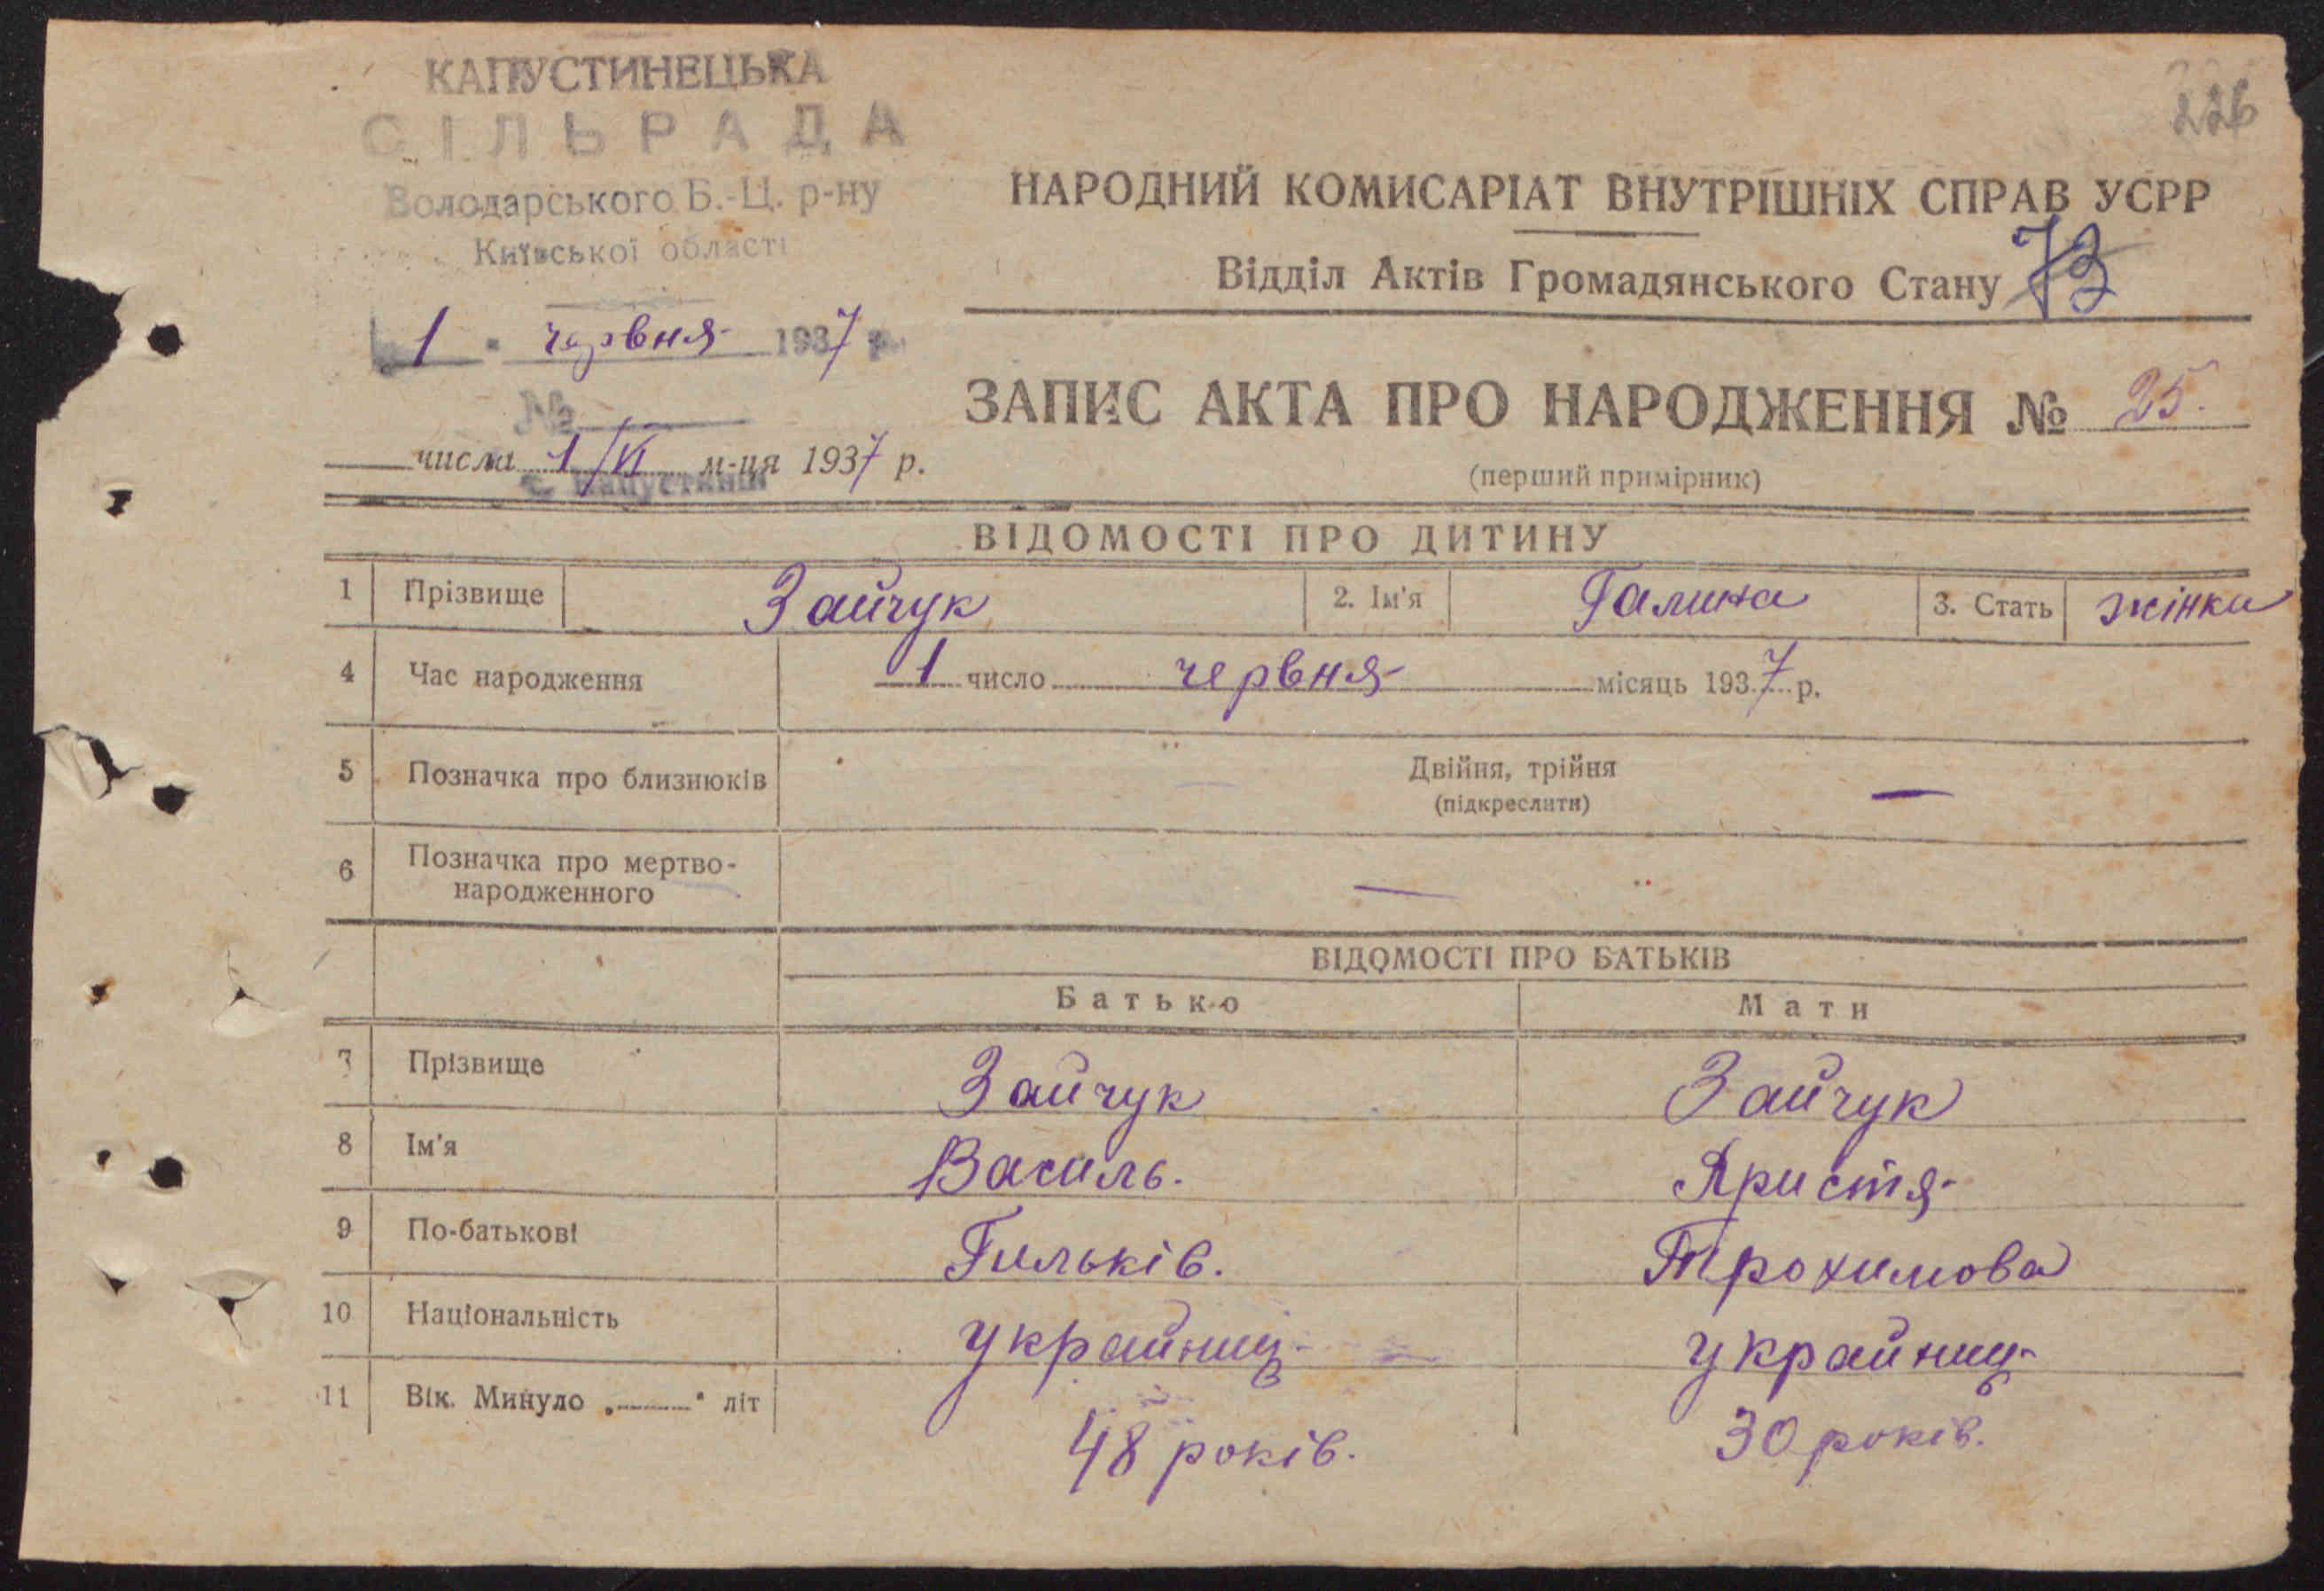 КАПУСТИНЕЦЬКА
СІЛЬРАДА
Володарського Б.-Ц. р-ну
Київської області
1 " червня 1937 р.
№
числа 1/VI м-ця 1937 р.
с. Капустинці
226
НАРОДНИЙ КОМИСАРІАТ ВНУТРІШНІХ СПРАВ УСРР
Відділ Актів Громадянського Стану 73
ЗАПИС АКТА ПРО НАРОДЖЕННЯ № 25.
(перший примірник)
ВІДОМОСТІ ПРО ДИТИНУ
1 Прізвище Зайчук 2. Ім'я Галина 3. Стать жінки
4 Час народження 1 число червня місяць 1937 р.
5 Позначка про близнюків Двійня, трійня —
(підкреслити)
6 Позначка про мертво-
народженного —
ВІДОМОСТІ ПРО БАТЬКІВ
Батько Мати
7 Прізвище Зайчук Зайчук
8 Ім'я Василь. Христя
9 По-батькові Гильків. Трохимова
10 Національність українц українц
11 Вік. Минуло „ " літ 48 років. 30 років.